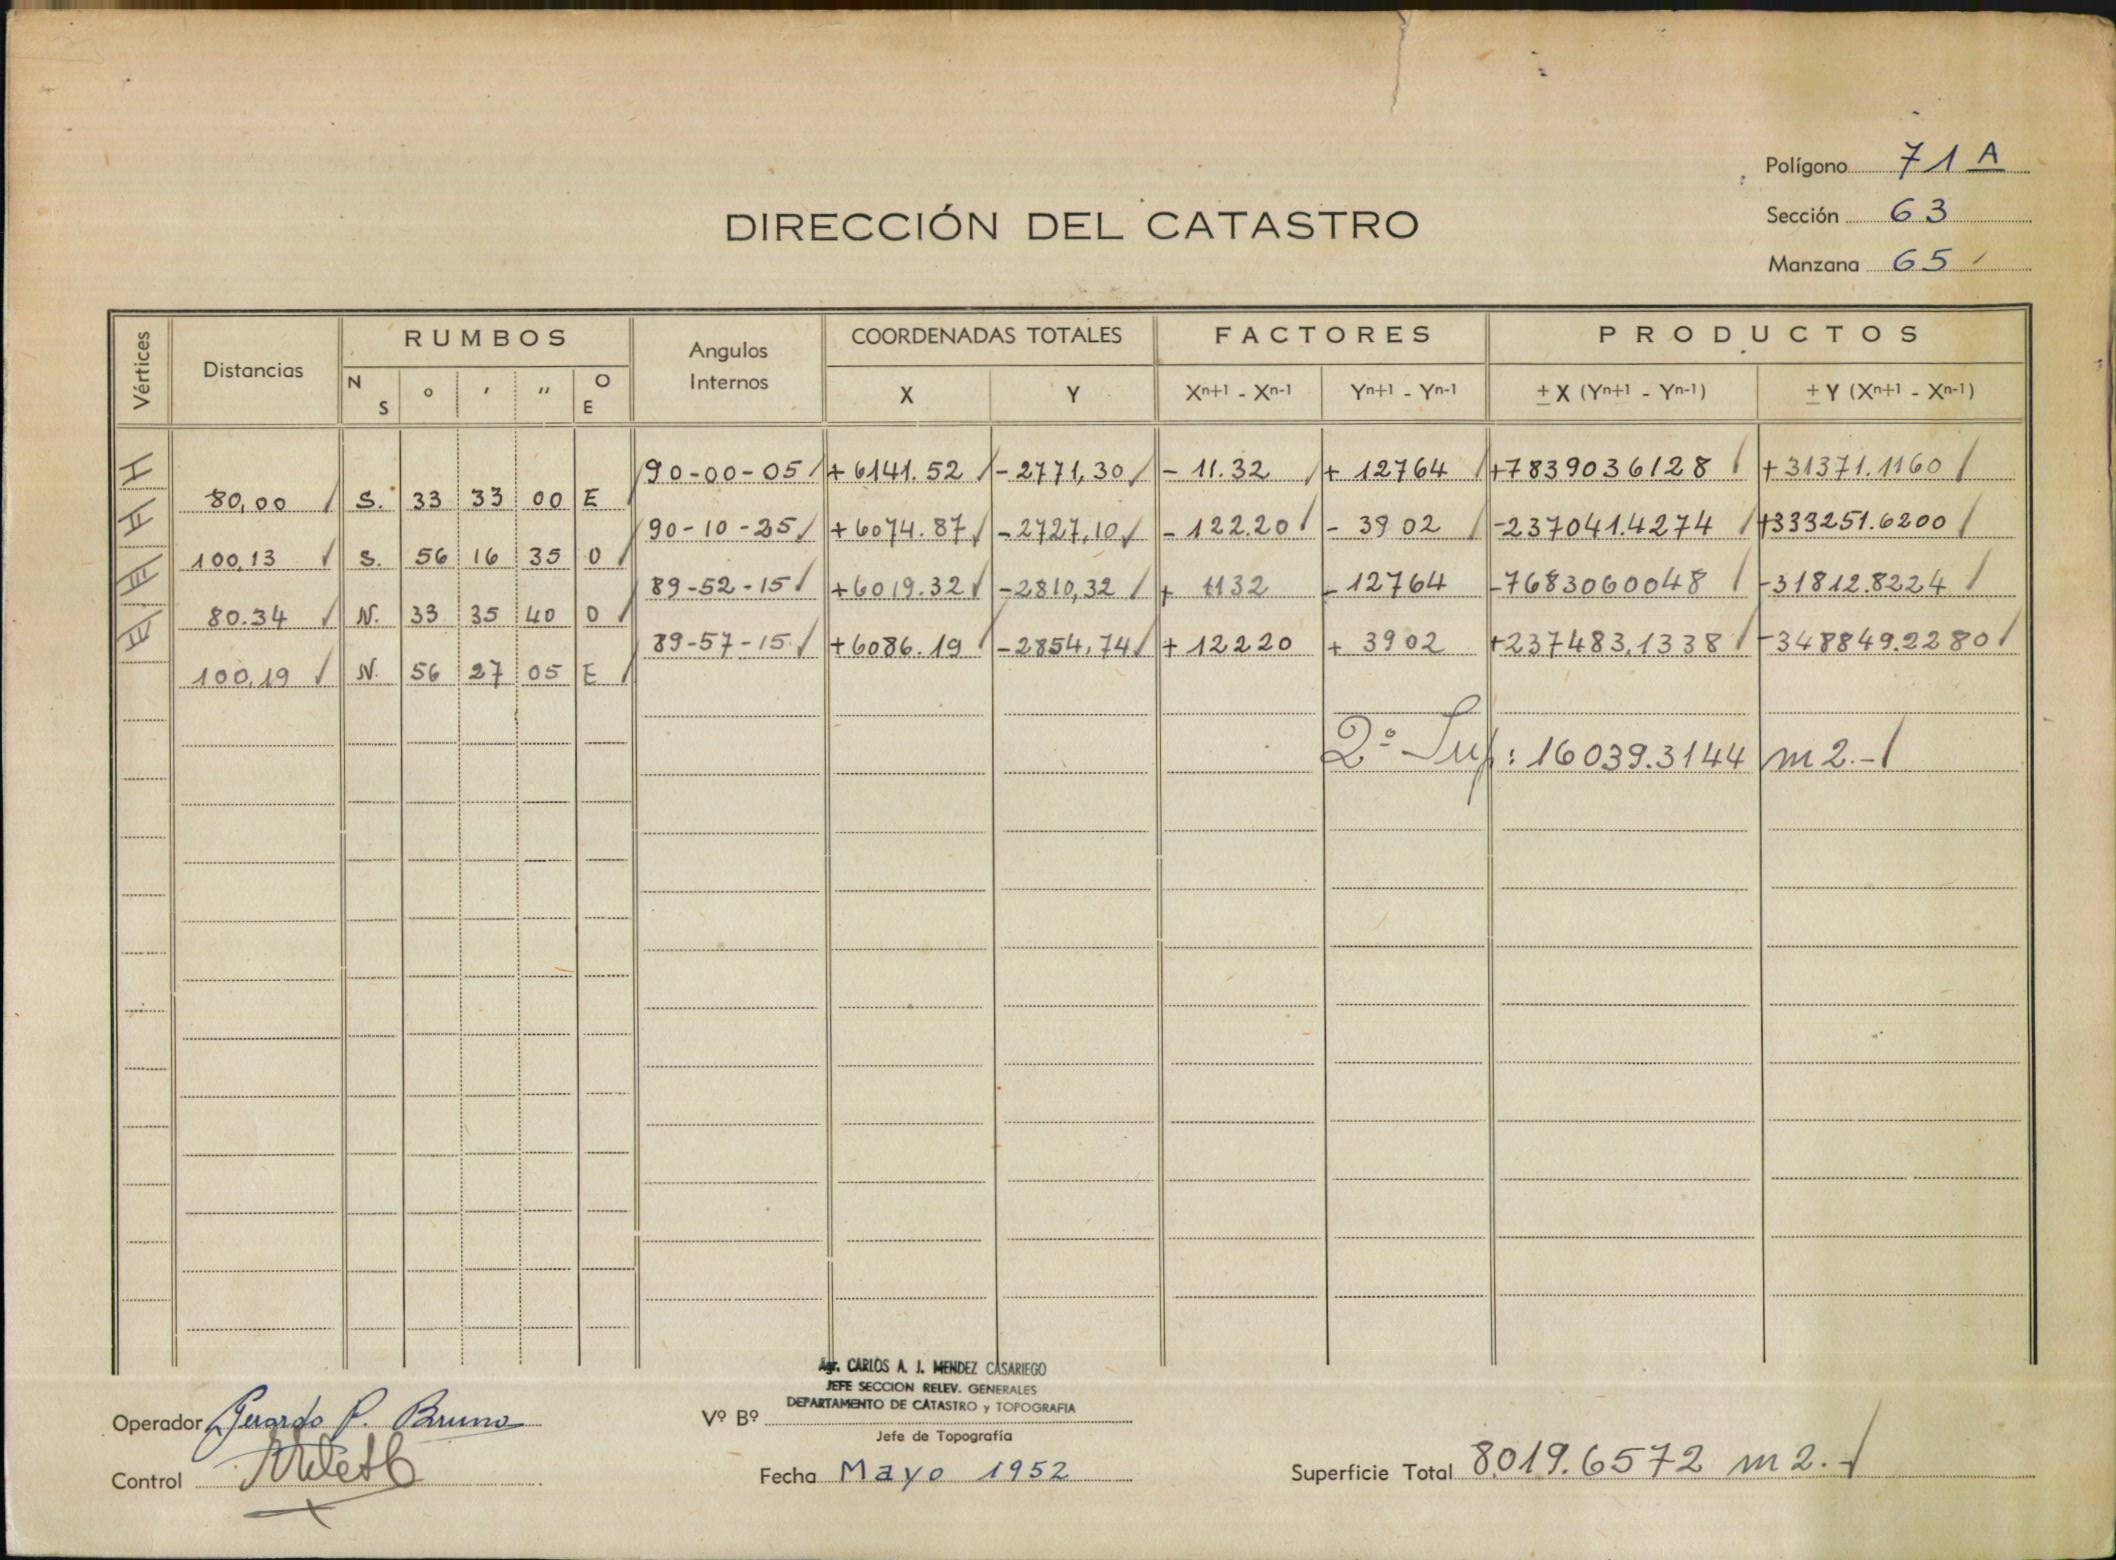 Polígono 71 A
Sección 63
Manzana 65
DIRECCIÓN DEL CATASTRO
Vértices Distancias RUMBOS Angulos Internos COORDENADAS TOTALES FACTORES PRODUCTOS
N S ° ' " O E X Y Xn+1 - Xn-1 Yn+1 - Yn-1 ± X (Yn+1 - Yn-1) ± Y (Xn+1 - Xn-1)
I 90-00-05 +6141.52 -2771,30 - 11.32 + 12764 +7839036128 +31371.1160
80,00 S. 33 33 00 E
II 90-10-25 +6074.87 -2727,10 - 122.20 - 3902 -237041.4274 +333251.6200
100,13 S. 56 16 35 O
III 89-52-15 +6019.32 -2810,32 + 1132 - 12764 -7683060048 -31812.8224
80.34 N. 33 35 40 O
IV 89-57-15 +6086.19 -2854,74 + 12220 + 3902 +237483.1338 -348849.2280
100,19 N. 56 27 05 E
2º Sup: 16039.3144 m2.-
Agr. CARLOS A. J. MENDEZ CASARIEGO
JEFE SECCION RELEV. GENERALES
DEPARTAMENTO DE CATASTRO y TOPOGRAFIA
Operador Gerardo P. Bruno
Vº Bº
Jefe de Topografía
Control
Fecha Mayo 1952
Superficie Total 8.019.6572 m2.-